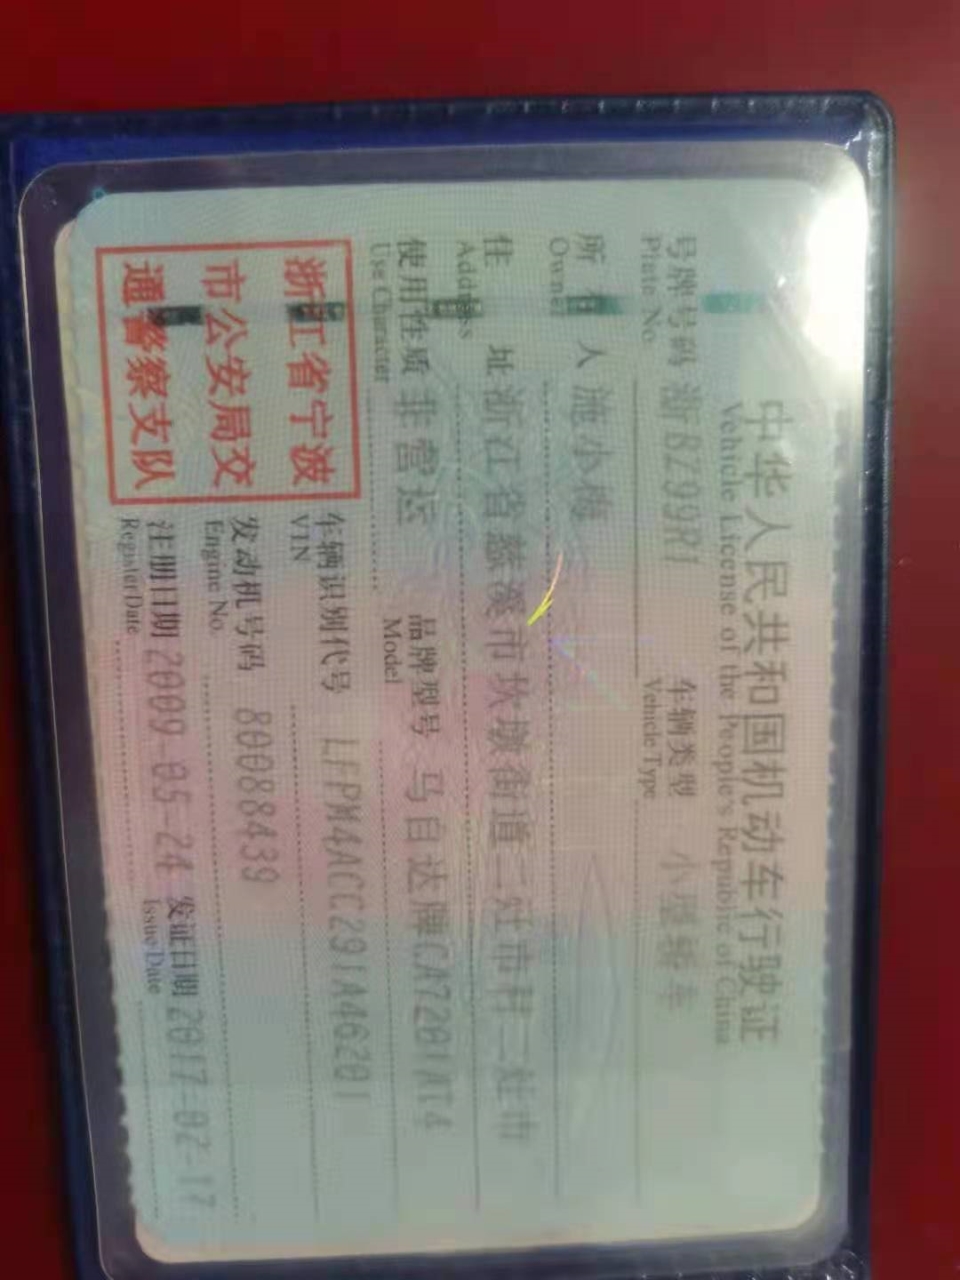 中华人民共和国机动车行驶证
Vehicle License of the People's Republic of China
号牌号码 浙BZ99R1 车辆类型 小型轿车
Plate No. Vehicle Type
所有人 施小梅
Owner
住址 浙江省慈溪市坎墩街道二灶市村三灶市
Address
使用性质 非营运 品牌型号 马自达牌CA7201AT4
Use Character Model
浙江省宁波
市公安局交
通警察支队
车辆识别代号 LFPM4ACC291A46201
VIN
发动机号码 80088439
Engine No.
注册日期 2009-05-24 发证日期 2017-02-17
Register Date Issue Date